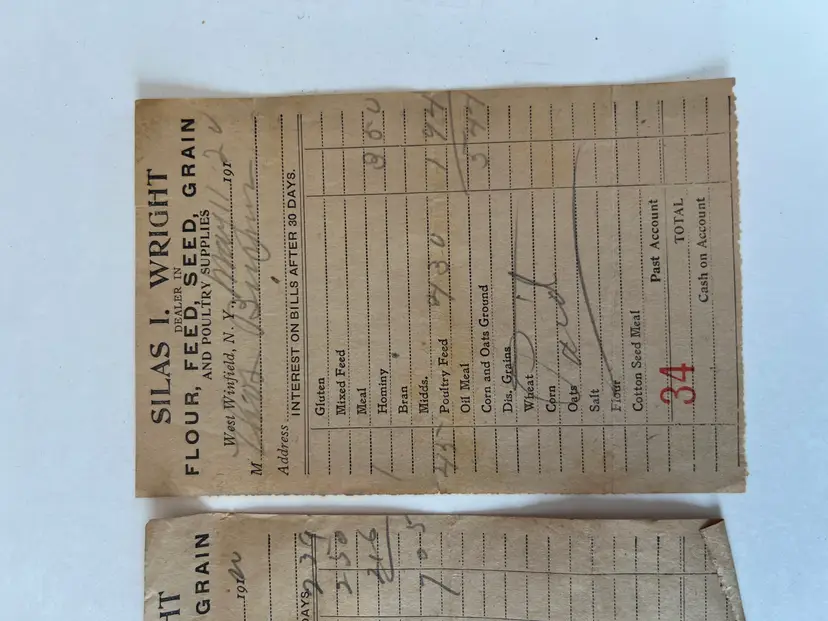 SILAS I. WRIGHT
DEALER IN
FLOUR, FEED, SEED, GRAIN
AND POULTRY SUPPLIES
West Winfield, N. Y., May 11 191 20
M
Address
INTEREST ON BILLS AFTER 30 DAYS.
Gluten
Mixed Feed
Meal
1 Hominy
Bran
Midds.
45 Poultry Feed 430 1 94
Oil Meal
Corn and Oats Ground
Dis. Grains
Wheat
Corn
Oats
Salt
Flour
Cotton Seed Meal
Past Account
34 TOTAL
Cash on Account
HT
GRAIN
191
DAYS. 2 39
2 50
2 16
7 05